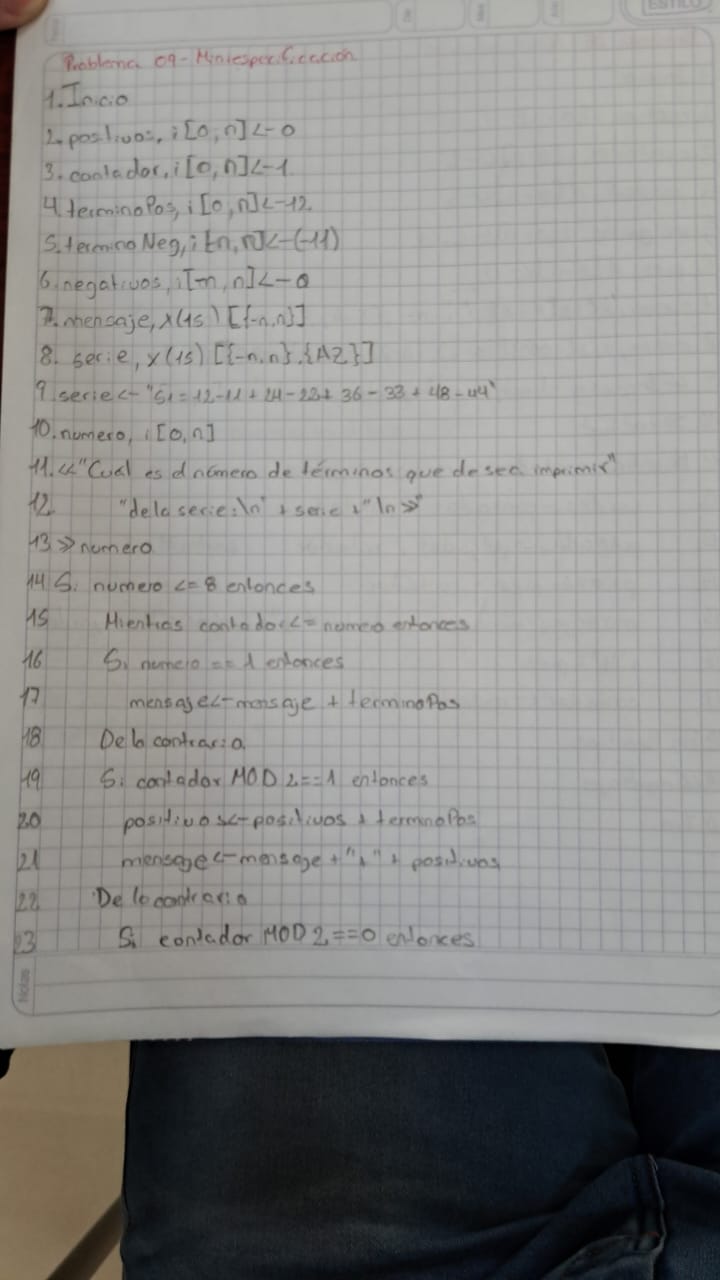 ESTILO
Problema 09 - Miniespecificación
1. Inicio
2. positivos, i [0, n] <- 0
3. contador, i [0, n] <- 1
4. terminoPos, i [0, n] <- 12
5. terminoNeg, i [-n, n] <- (-11)
6. negativos, i [-n, n] <- 0
7. mensaje, x(15) [{-n,n}]
8. serie, x(15) [{-n,n},{AZ}]
9. serie <- "S1 = 12-11 + 24 - 22 + 36 - 33 + 48 - 44"
10. numero, i [0, n]
11. << "Cual es el número de términos que desea imprimir"
12 "de la serie: \n" + serie + "\n >>"
13 >> numero
14 Si numero <= 8 entonces
15 Mientras contador <= numero entonces
16 Si numero == 1 entonces
17 mensaje <- mensaje + terminoPos
18 De lo contrario
19 Si contador MOD 2 == 1 entonces
20 positivos <- positivos + terminoPos
21 mensaje <- mensaje + "+" + positivos
22 De lo contrario
23 Si contador MOD 2 == 0 entonces
Notas